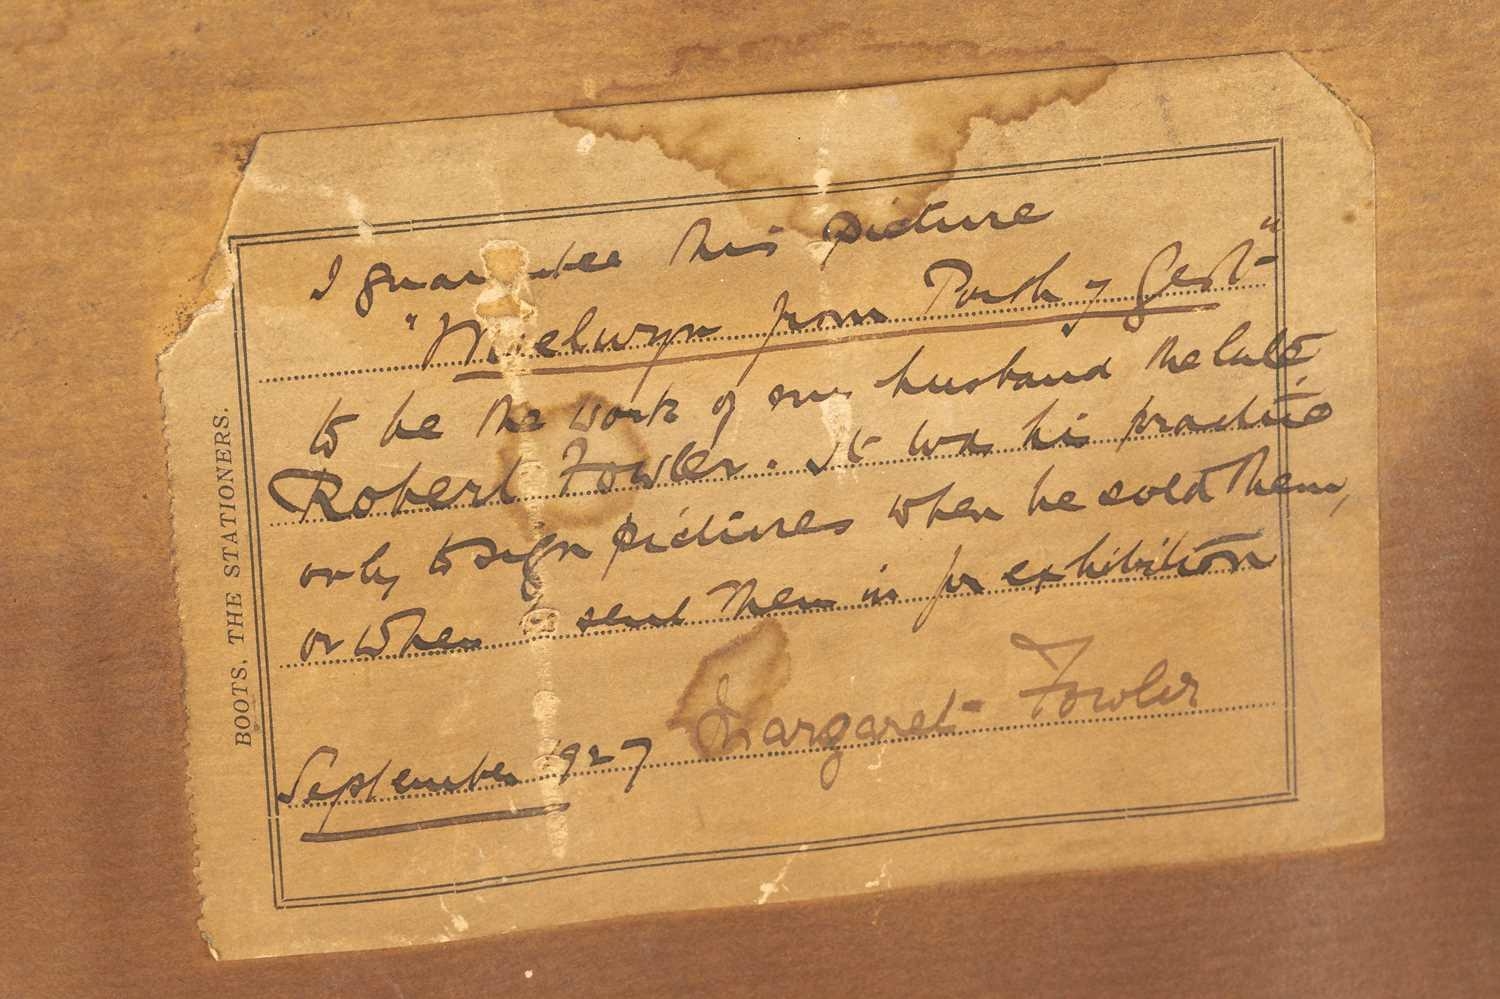 I guarantee this picture
"Moelwyn from Porth y Gest"
to be the work of my husband the late
Robert Fowler. It was his practice
only to sign pictures when he sold them,
or when he sent them in for exhibition
Margaret Fowler
September 1927
BOOTS, THE STATIONERS.